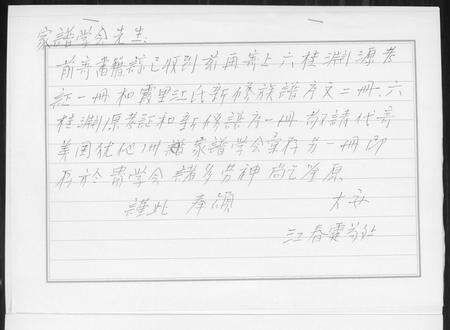 家譜学会先生:
前寄書籍諒已收到 茲再寄上六桂淵源考
証一冊和霞里江氏新修族譜序文二冊.六
桂淵源考証和新修譜序一冊.敬請代寄
美国犹他州 家譜学会存 另一冊即
存於 貴学会 諸多劳神 尚乞 原
謹此 奉頌 大安
江春霖